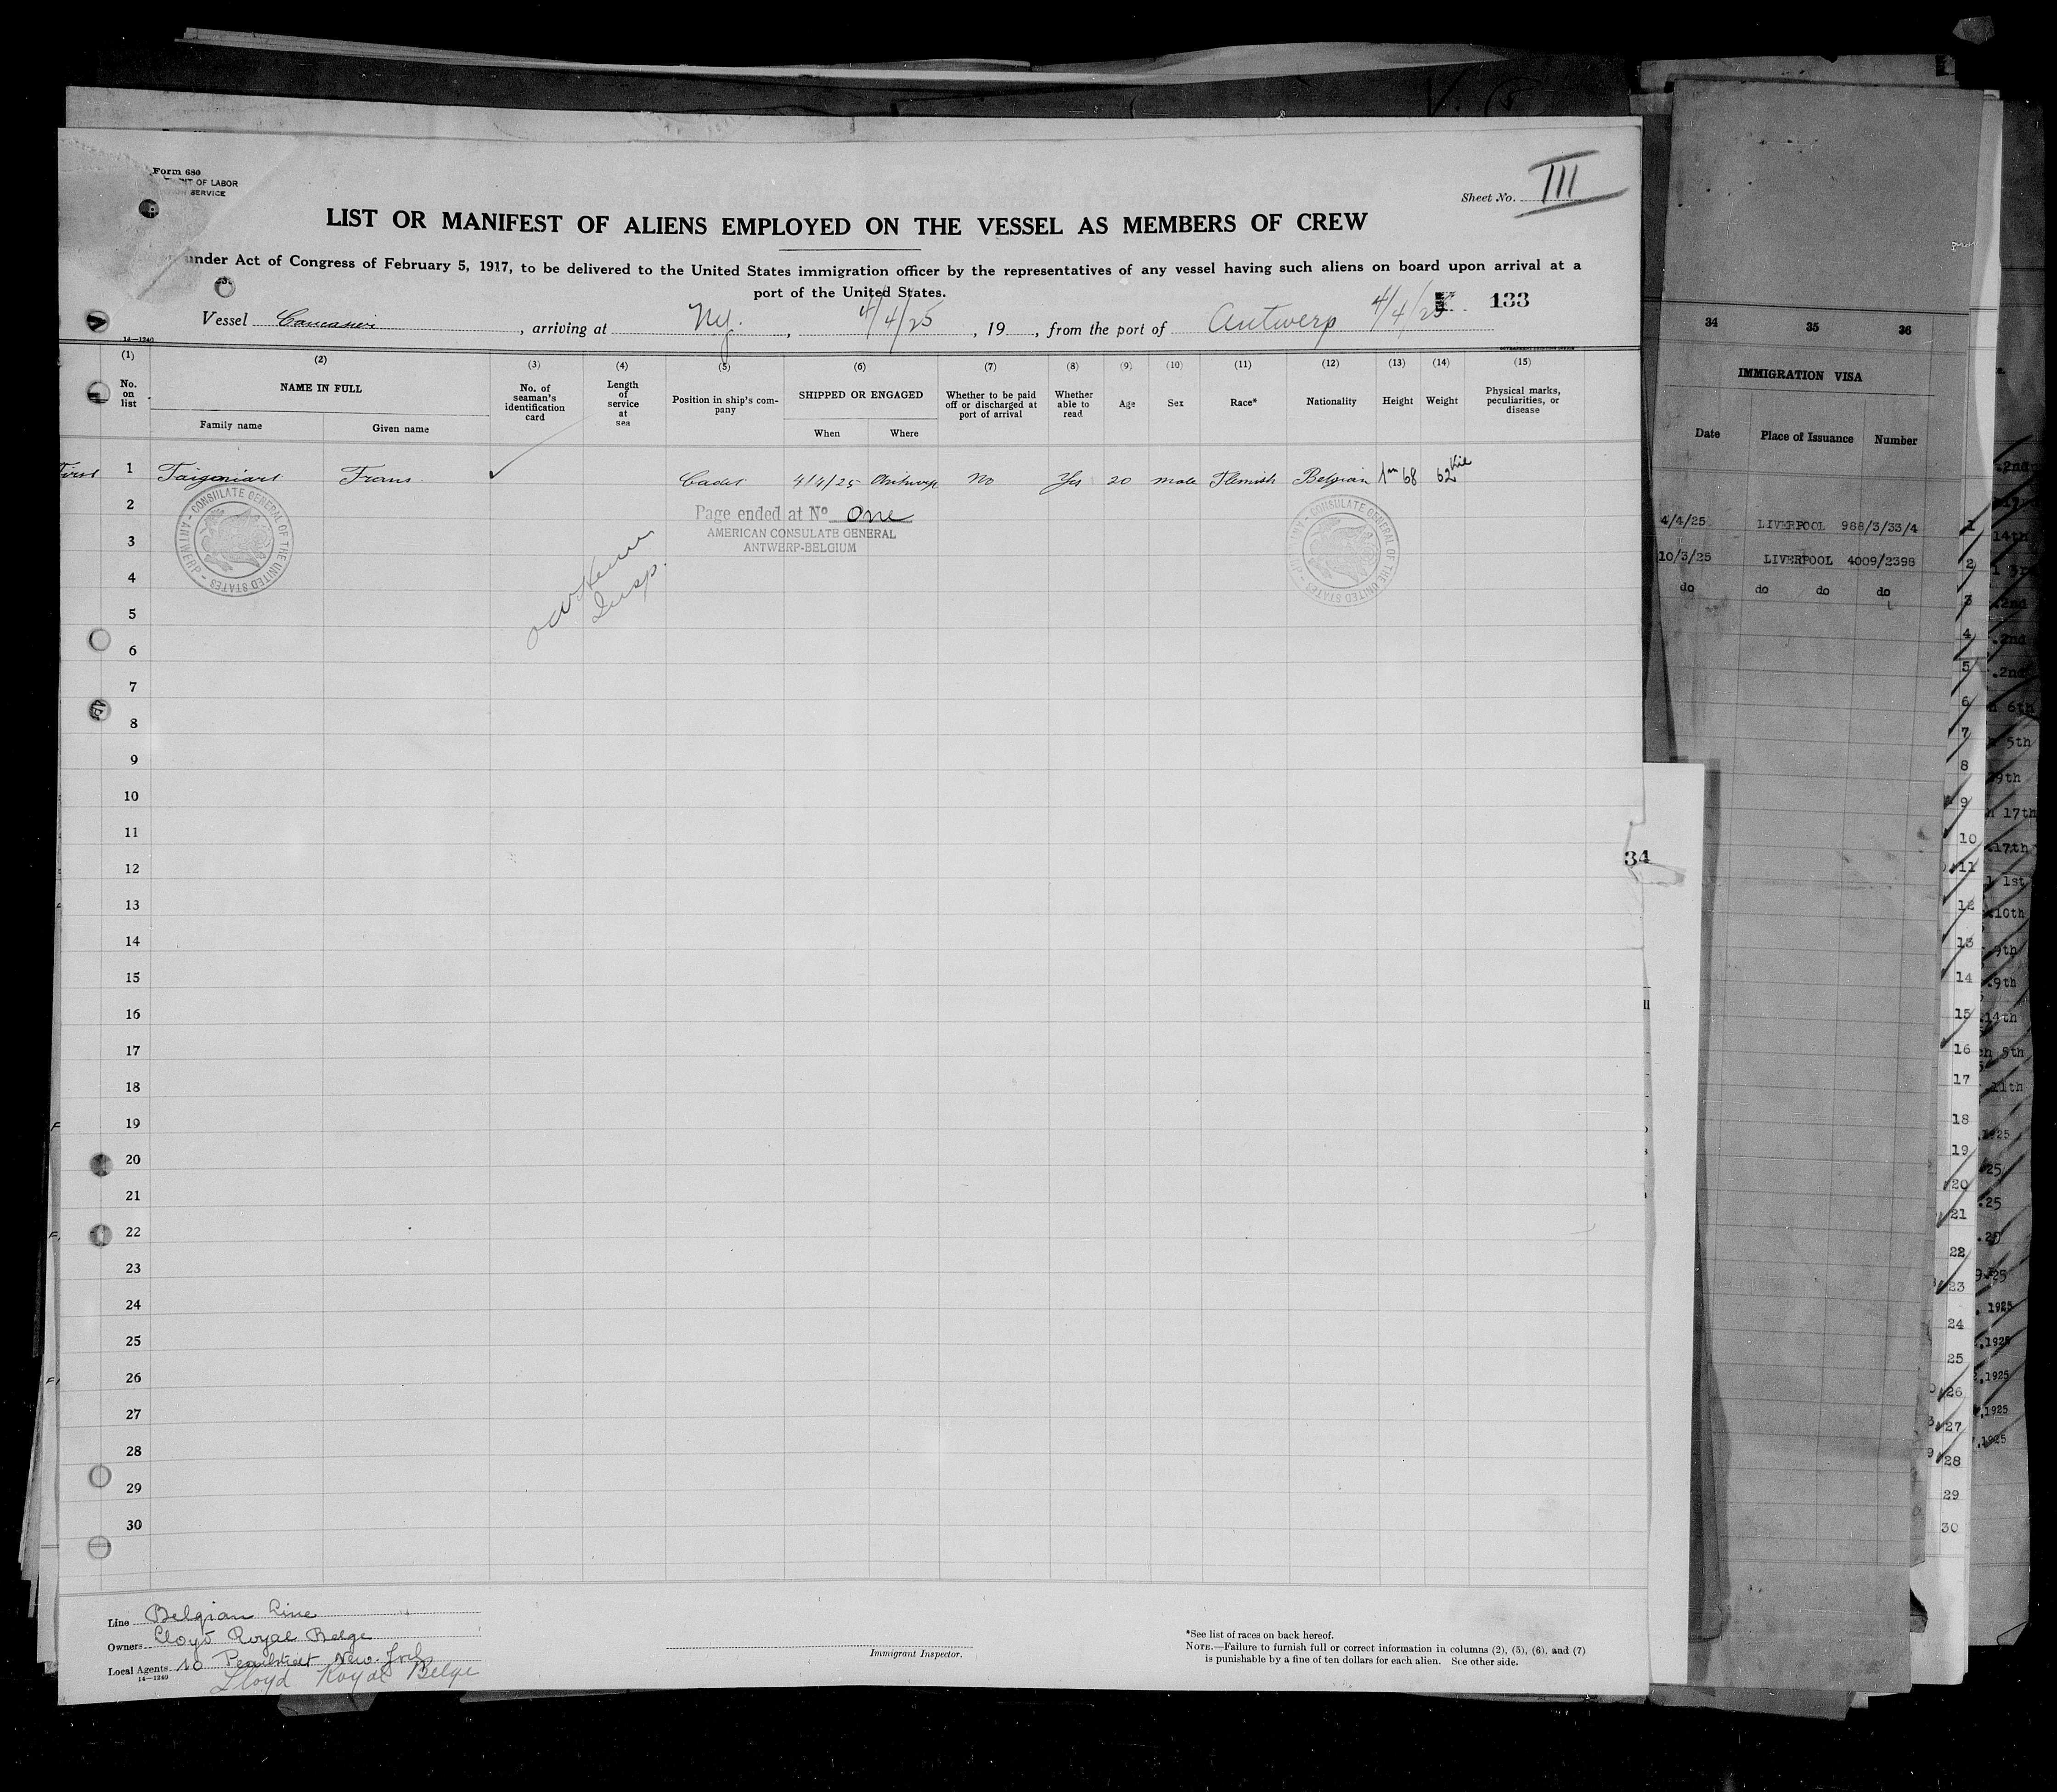 Form 680
OF LABOR
SERVICE
Sheet No. III
LIST OR MANIFEST OF ALIENS EMPLOYED ON THE VESSEL AS MEMBERS OF CREW
under Act of Congress of February 5, 1917, to be delivered to the United States immigration officer by the representatives of any vessel having such aliens on board upon arrival at a
port of the United States.
133
Vessel , arriving at Ny. , 4/4/25 , 19 , from the port of Antwerp 4/4/25
14—1240
(1) (2) (3) (4) (5) (6) (7) (8) (9) (10) (11) (12) (13) (14) (15)
No. on list
NAME IN FULL
Family name
Given name
No. of seaman's identification card
Length of service at sea
Position in ship's company
SHIPPED OR ENGAGED
When
Where
Whether to be paid off or discharged at port of arrival
Whether able to read
Age
Sex
Race*
Nationality
Height
Weight
Physical marks, peculiarities, or disease
First 1 Frans Cadet 4/4/25 Antwerp No Yes 20 male Flemish Belgian 1m 68 62 Kil
Page ended at No One
AMERICAN CONSULATE GENERAL
ANTWERP-BELGIUM
CONSULATE GENERAL OF THE UNITED STATES - ANTWERP -
CONSULATE GENERAL OF THE UNITED STATES - ANTWERP -
Insp.
2
3
4
5
6
7
8
9
10
11
12
13
14
15
16
17
18
19
20
21
22
23
24
25
26
27
28
29
30
Line Belgian Line
Owners Lloyd Royal Belge
Local Agents 10 Pearlstreet New-York
14—1240
Lloyd Royal Belge
Immigrant Inspector.
*See list of races on back hereof.
NOTE.—Failure to furnish full or correct information in columns (2), (5), (6), and (7)
is punishable by a fine of ten dollars for each alien. See other side.
34 35 36
IMMIGRATION VISA
Date Place of Issuance Number
4/4/25 LIVERPOOL 988/3/33/4
10/3/25 LIVERPOOL 4009/2398
do do do do
34
1
2
3
4
5
6
7
8
9
10
11
12
13
14
15
16
17
18
19
20
21
22
23
24
25
26
27
28
29
30